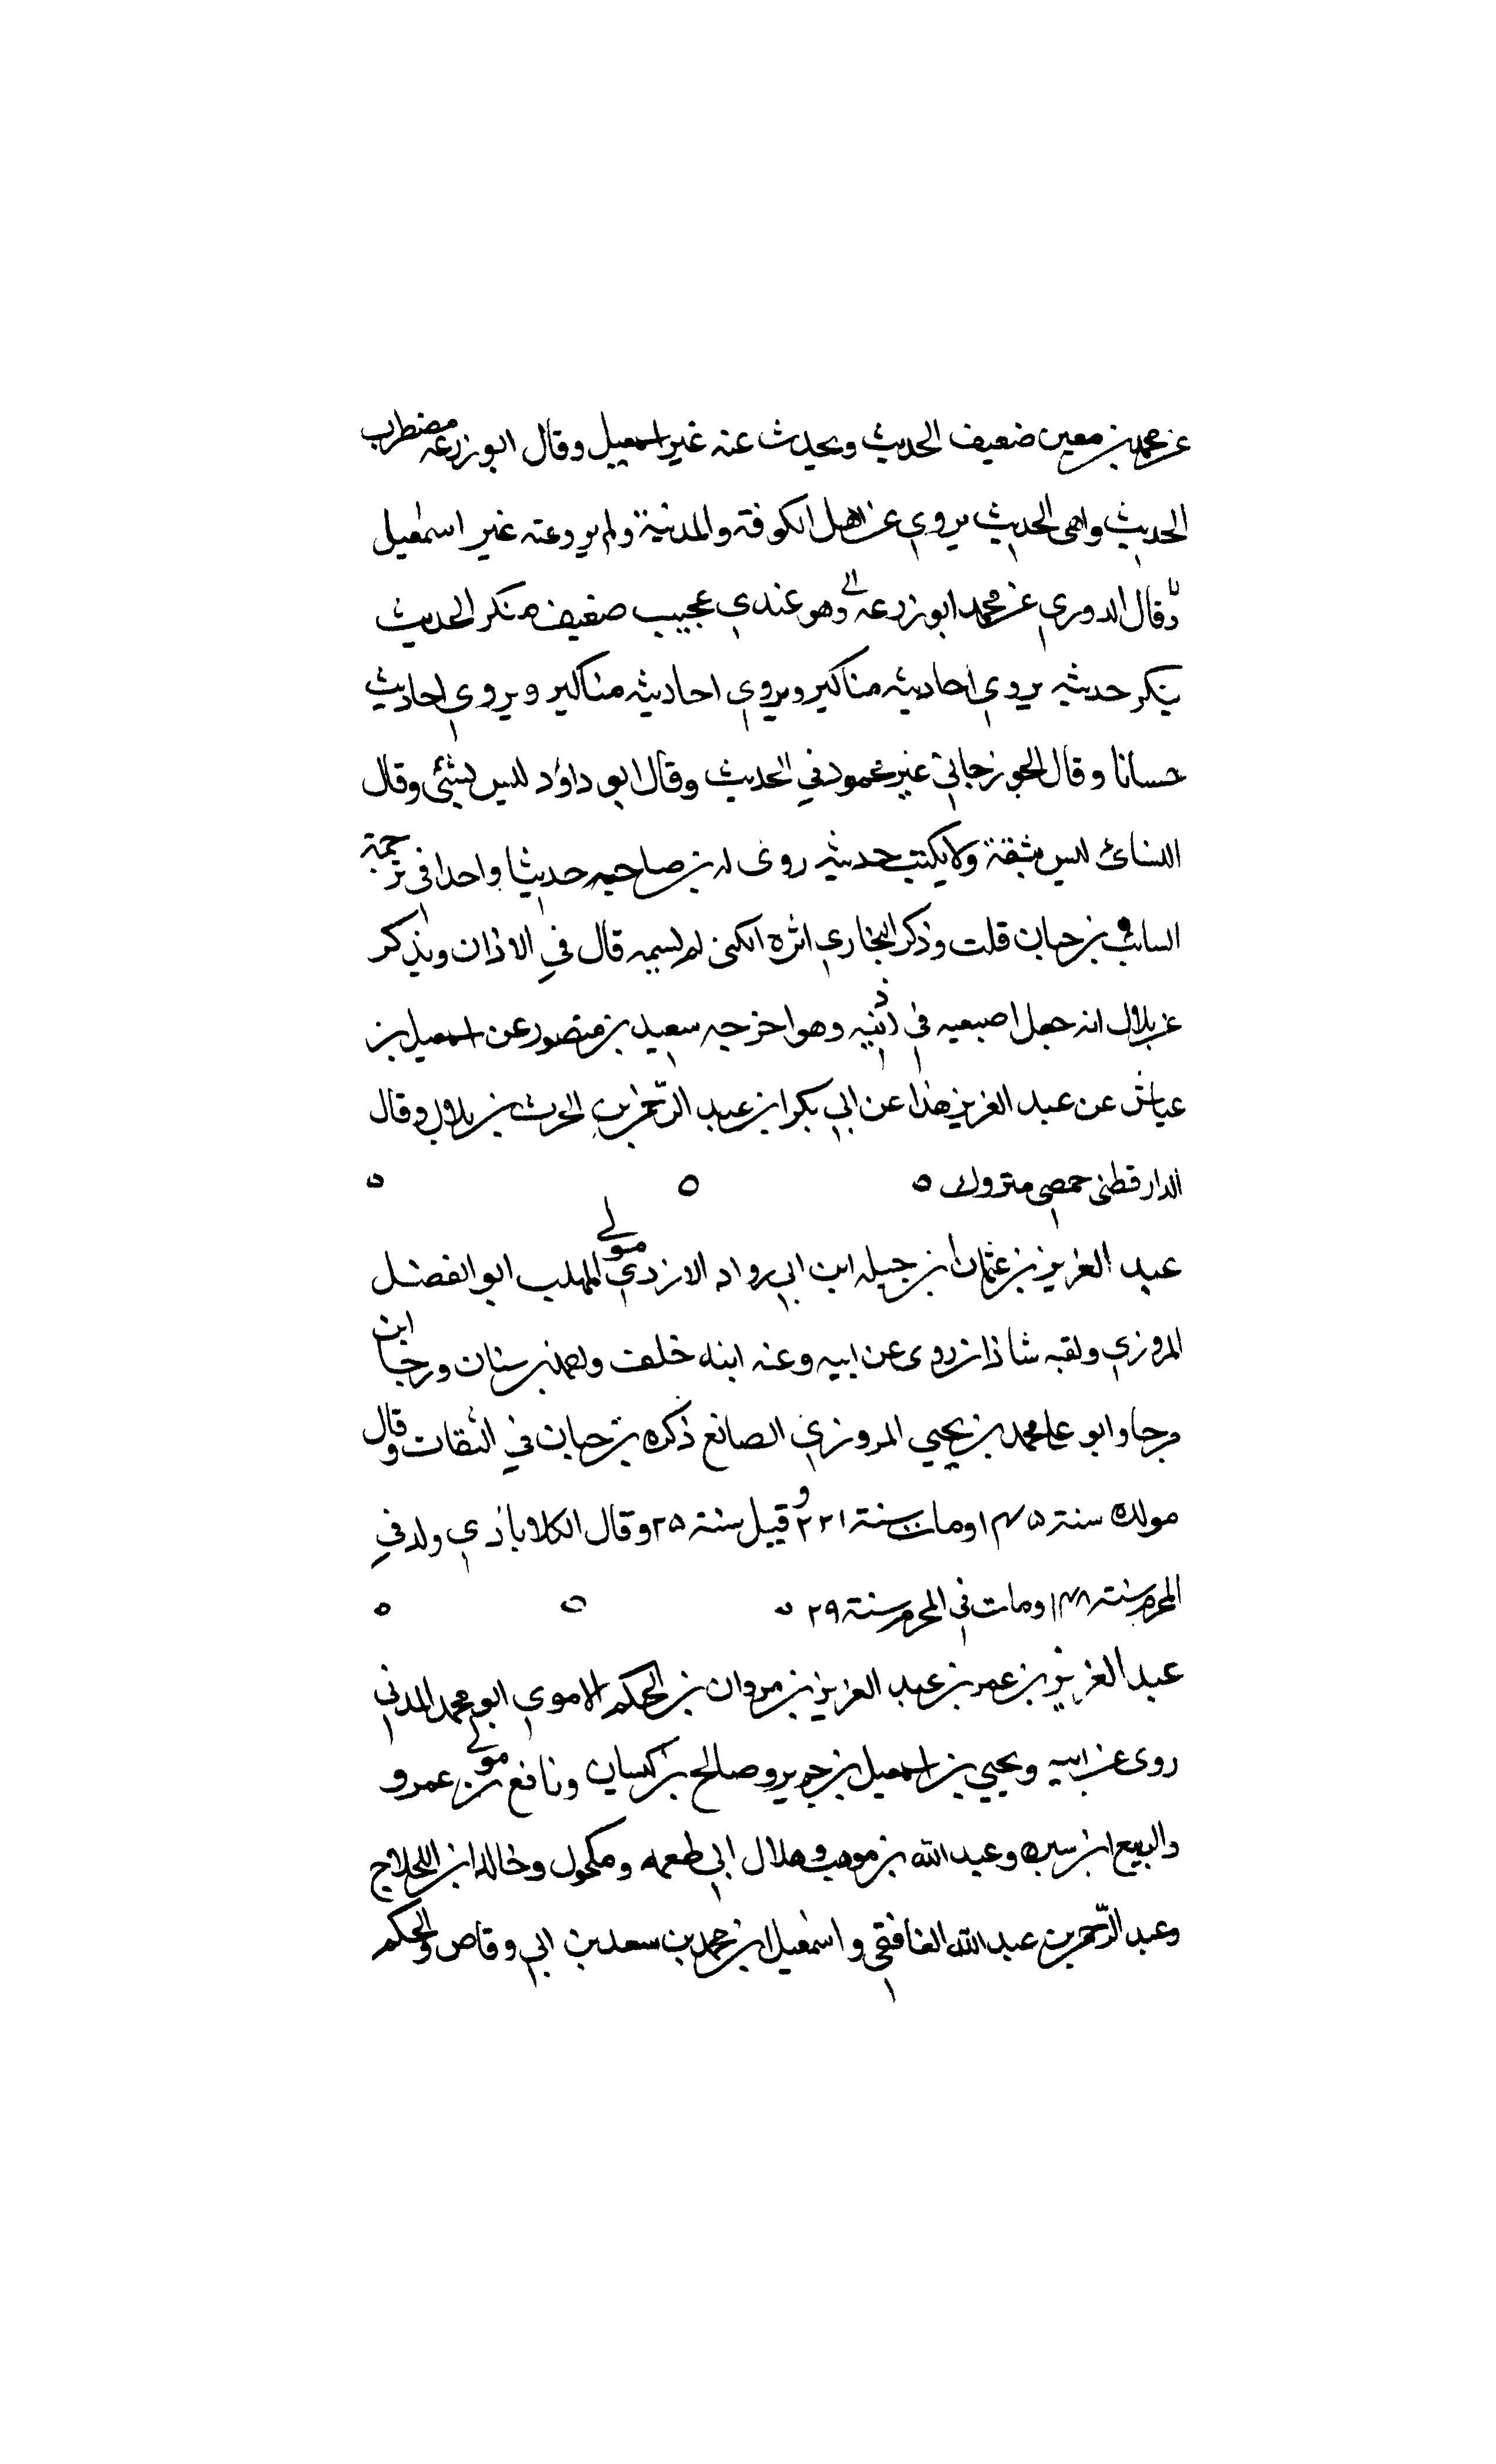 عن محمد بن معين ضعيف الحديث ويحدث عنه غير اسمعيل وقال ابو زرعه مضطرب
الحديث واهى الحديث يروي عن اهل الكوفة والمدنية ولم يرو عنه غير اسمٰعيل
وقال الدوري عن محمد ابو زرعه وهو عندي عجيب ضعيف منكر الحديث
ينكر حديثه يروي احاديثه مناكير ويروي احاديثه مناكير ويروي احاديث
حسانا وقال الجوزجاني غير محمود في الحديث وقال ابو داؤد ليس بشئ وقال
النسائ ليس بثقة ولا يكتب حديثه روى له بن صاحبه حديثا واحدا في ترجمة
السائب بن حبان قلت وذكر البخاري اثره الكنى لم يسمه قال في الاذان ويذكر
عن بلال انه جعل اصبعيه في اذنيه وهو اخرجه سعيد بن منصور عن اسمعيل بن
عياش عن عبد العزيز هذا عن ابي بكر ابن عبد الرحمن بن الحرث بن بلال وقال
الدارقطنى حمصي متروك ه ه ه
عبد العزيز بن عثمان ابن جبله ابن ابي رواد الازدي مولے المهلب ابو الفضل
المروزي ولقبه شاذان روى عن ابيه وعنه ابنه خلف واحمد بن سنان ورجا ابن
مرجا وابو علے محمد بن يحيي المروزي الصانع ذكره بن حبان في الثقات وقال
مولده سنة ١٤٥ ومات سنة ٢٢١ وقيل سنة ٢٥ وقال الكلاباذي ولد في
المحرم سنة ١٤٨ ومات في المحرم سنة ٢٩ ه ه ه
عبد العزيز بن عمر بن عبد العزيز بن مروان بن الحكم الاموي ابو محمد المدني
روى عن ابيه ويحيي بن اسمعيل بن جرير وصالح بن كيسان ونافع مولے بن عمرو
والبيع ابن سبره وعبد الله بن موهب وهلال ابي طعمه ومكحول وخالد ابن اللجلاج
وعبد الرحمن بن عبد الله الغافقي واسمٰعيل ابن محمد بن سعد بن ابي وقاص والحكم